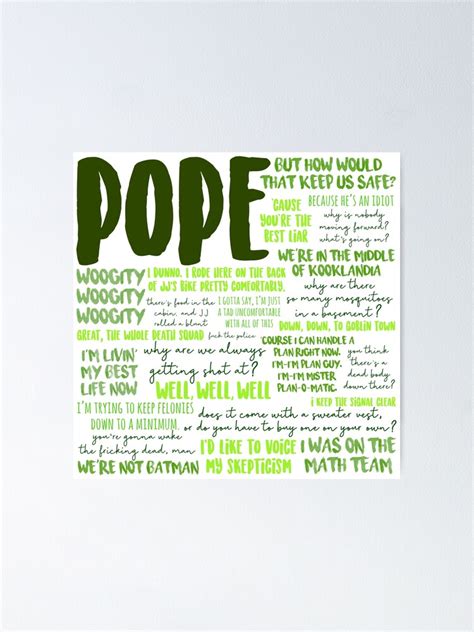 POPE
BUT HOW WOULD
THAT KEEP US SAFE?
'CAUSE
YOU'RE THE
BEST LIAR
BECAUSE HE'S AN IDIOT
why is nobody
moving forward?
what's going on?
WE'RE IN THE MIDDLE
OF KOOKLANDIA
WOOGITY
WOOGITY
WOOGITY
I DUNNO. I RODE HERE ON THE BACK
OF JJ'S BIKE PRETTY COMFORTABLY.
why are there
so many mosquitoes
in a basement?
there's food in the
cabin, and JJ
rolled a blunt
I GOTTA SAY, I'M JUST
A TAD UNCOMFORTABLE
WITH ALL OF THIS
DOWN, DOWN, TO GOBLIN TOWN
GREAT, THE WHOLE DEATH SQUAD
fuck the police
'COURSE I CAN HANDLE A
PLAN RIGHT NOW.
I'M-I'M PLAN GUY.
I'M-I'M MISTER
PLAN-O-MATIC.
you think
there's a
dead body
down there?
I'M LIVIN'
MY BEST
LIFE NOW
why are we always
getting shot at?
WELL, WELL, WELL
i KEEP THE SIGNAL CLEAR
I'M TRYING TO KEEP FELONIES
DOWN TO A MINIMUM.
does it come with a sweater vest,
or do you have to buy one on your own?
you're gonna wake
the fricking dead, man
WE'RE NOT BATMAN
I'D LIKE TO VOICE
MY SKEPTICISM
I WAS ON THE
MATH TEAM